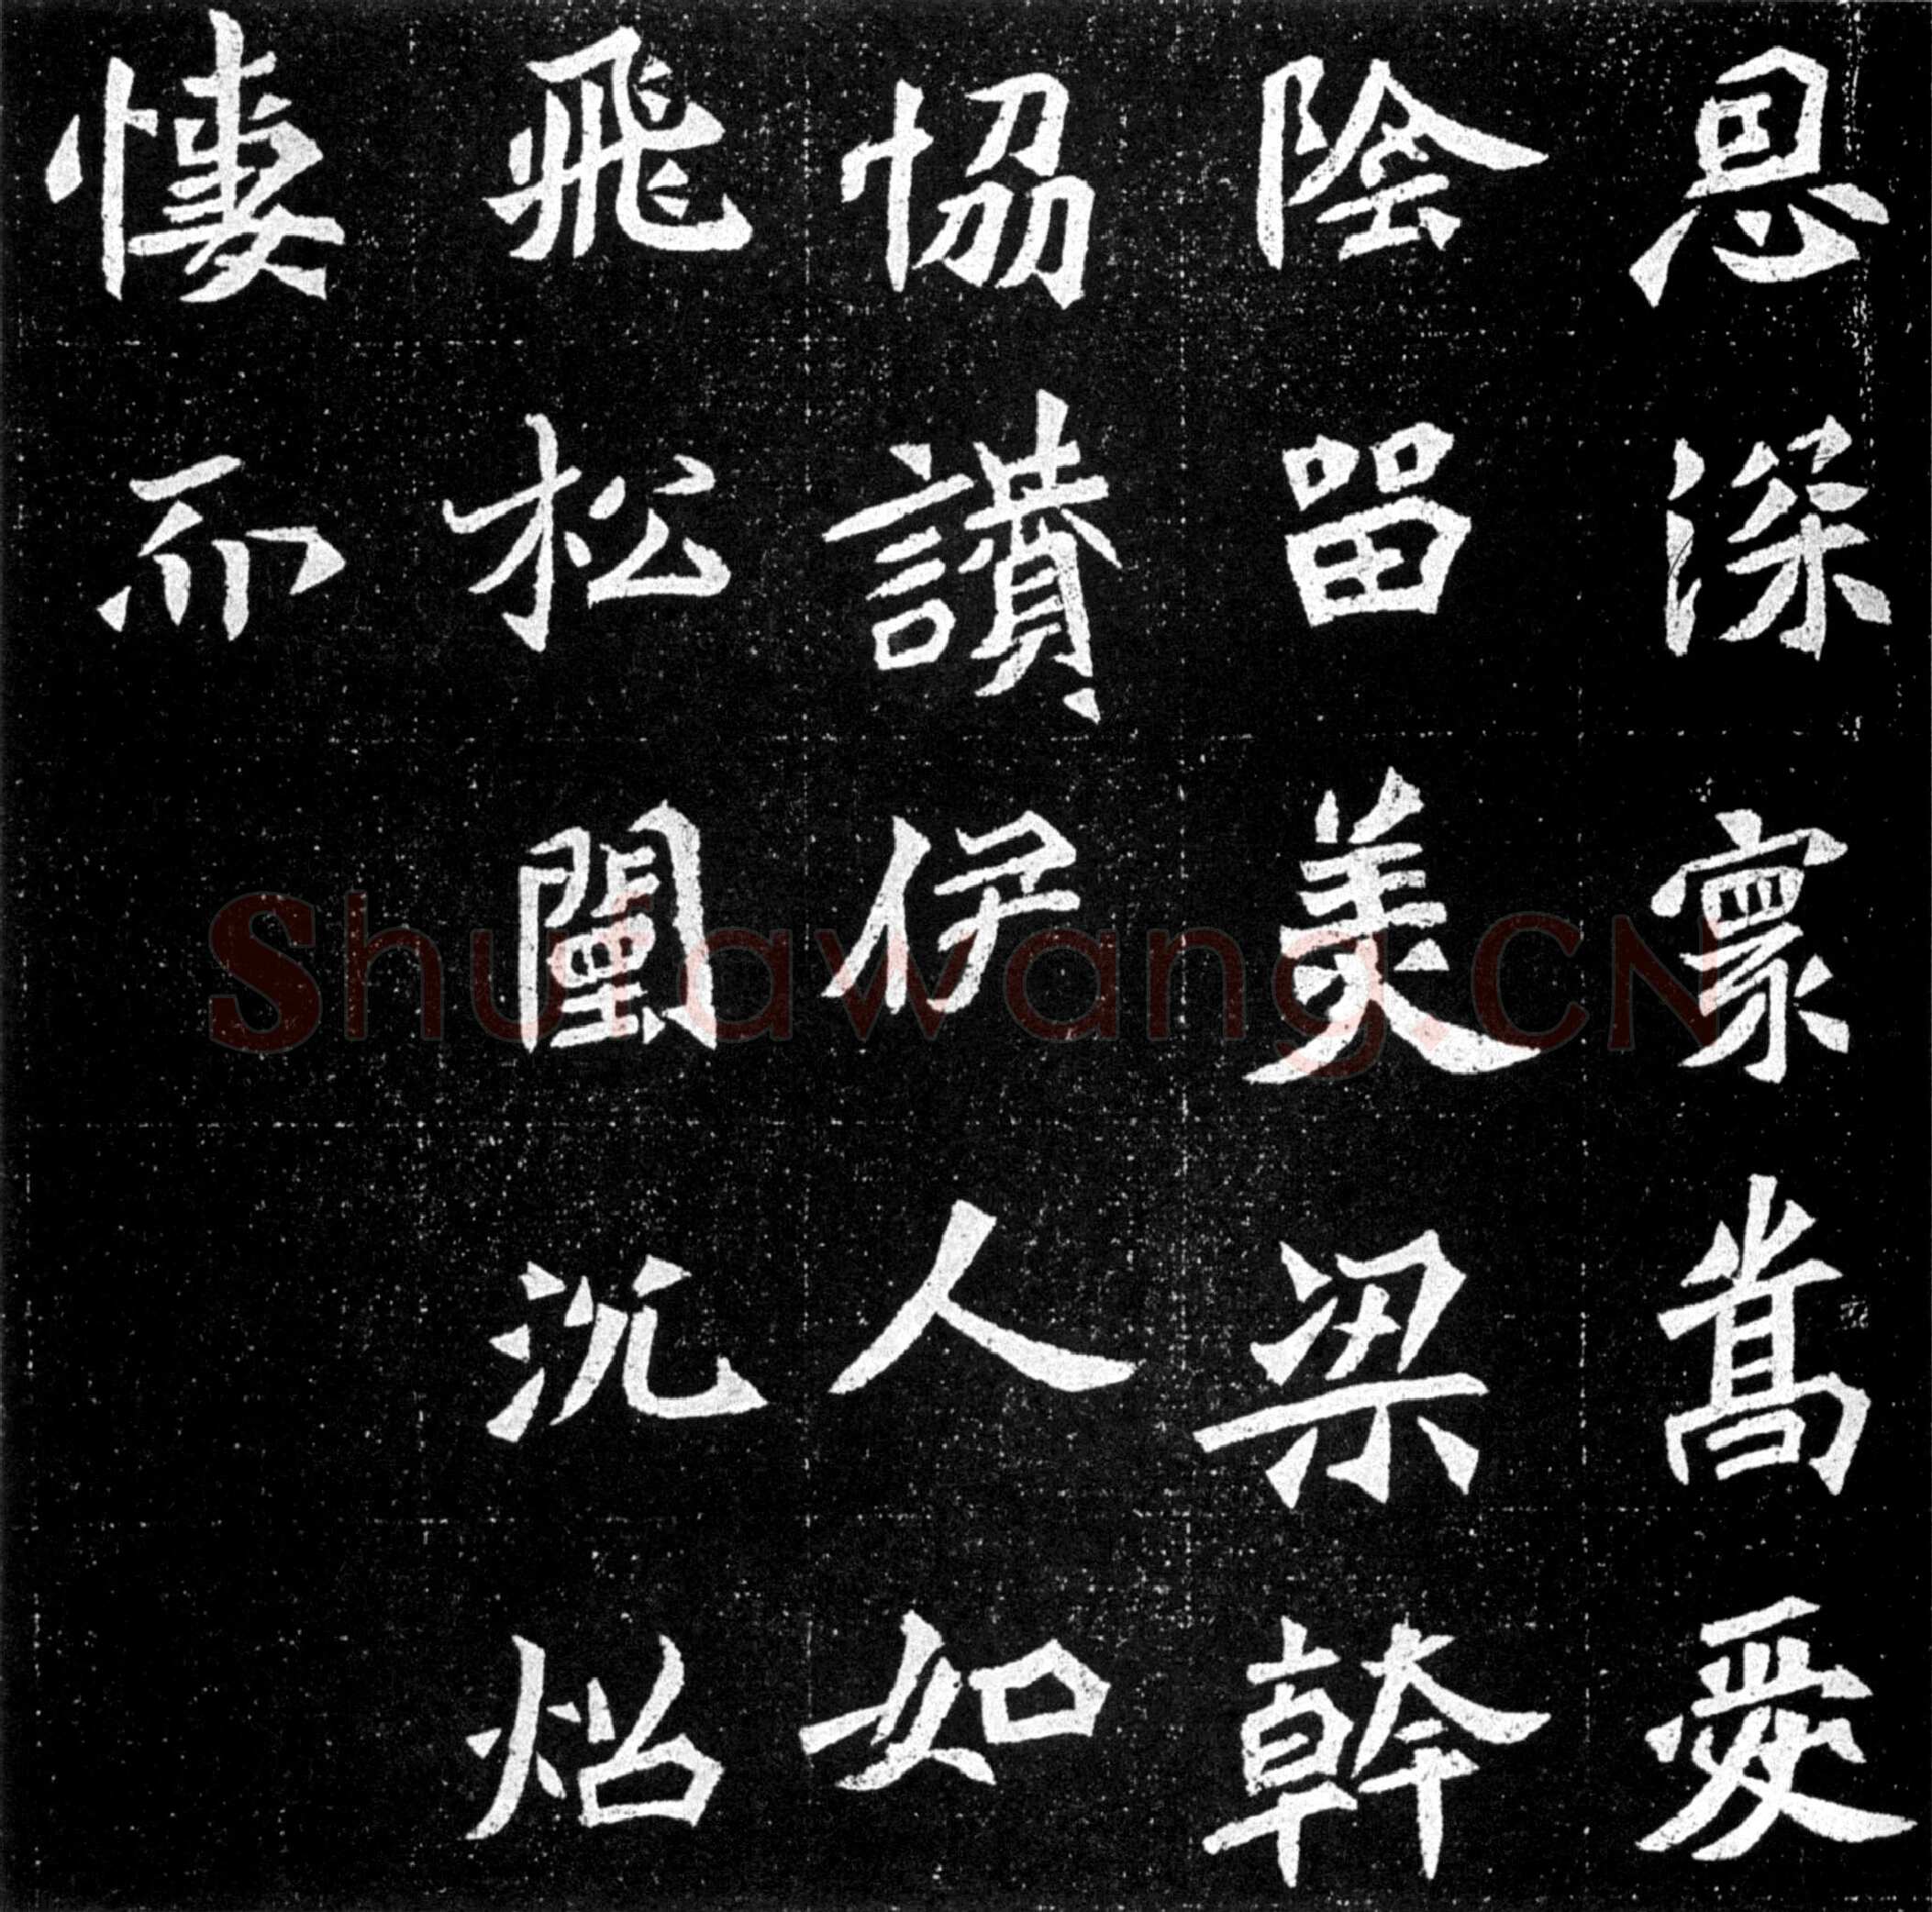 恩深寰嵩愛
陰留美梁幹
恊讚伊人如
飛松闉沉炤
悽而
Shufawang.CN